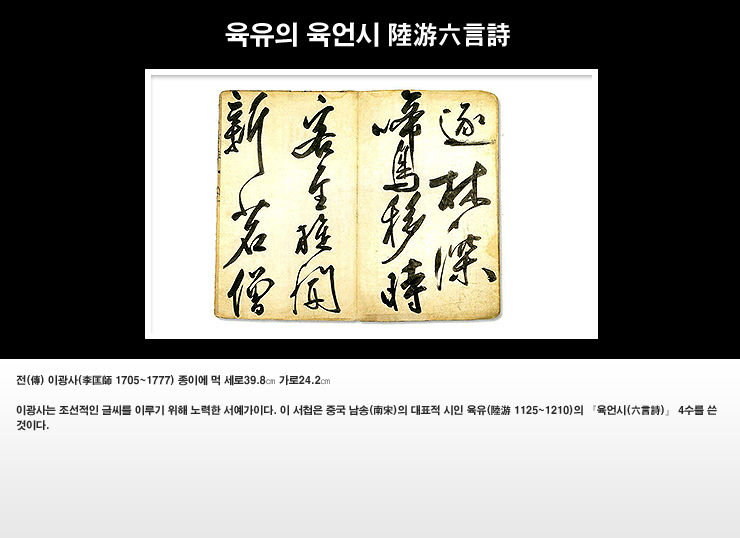 육유의 육언시 陸游六言詩
逐林深
啼鳥移時
客至旋開
新茗僧
전(傳) 이광사(李匡師 1705~1777) 종이에 먹 세로39.8㎝ 가로24.2㎝
이광사는 조선적인 글씨를 이루기 위해 노력한 서예가이다. 이 서첩은 중국 남송(南宋)의 대표적 시인 육유(陸游 1125~1210)의 『육언시(六言詩)』 4수를 쓴
것이다.